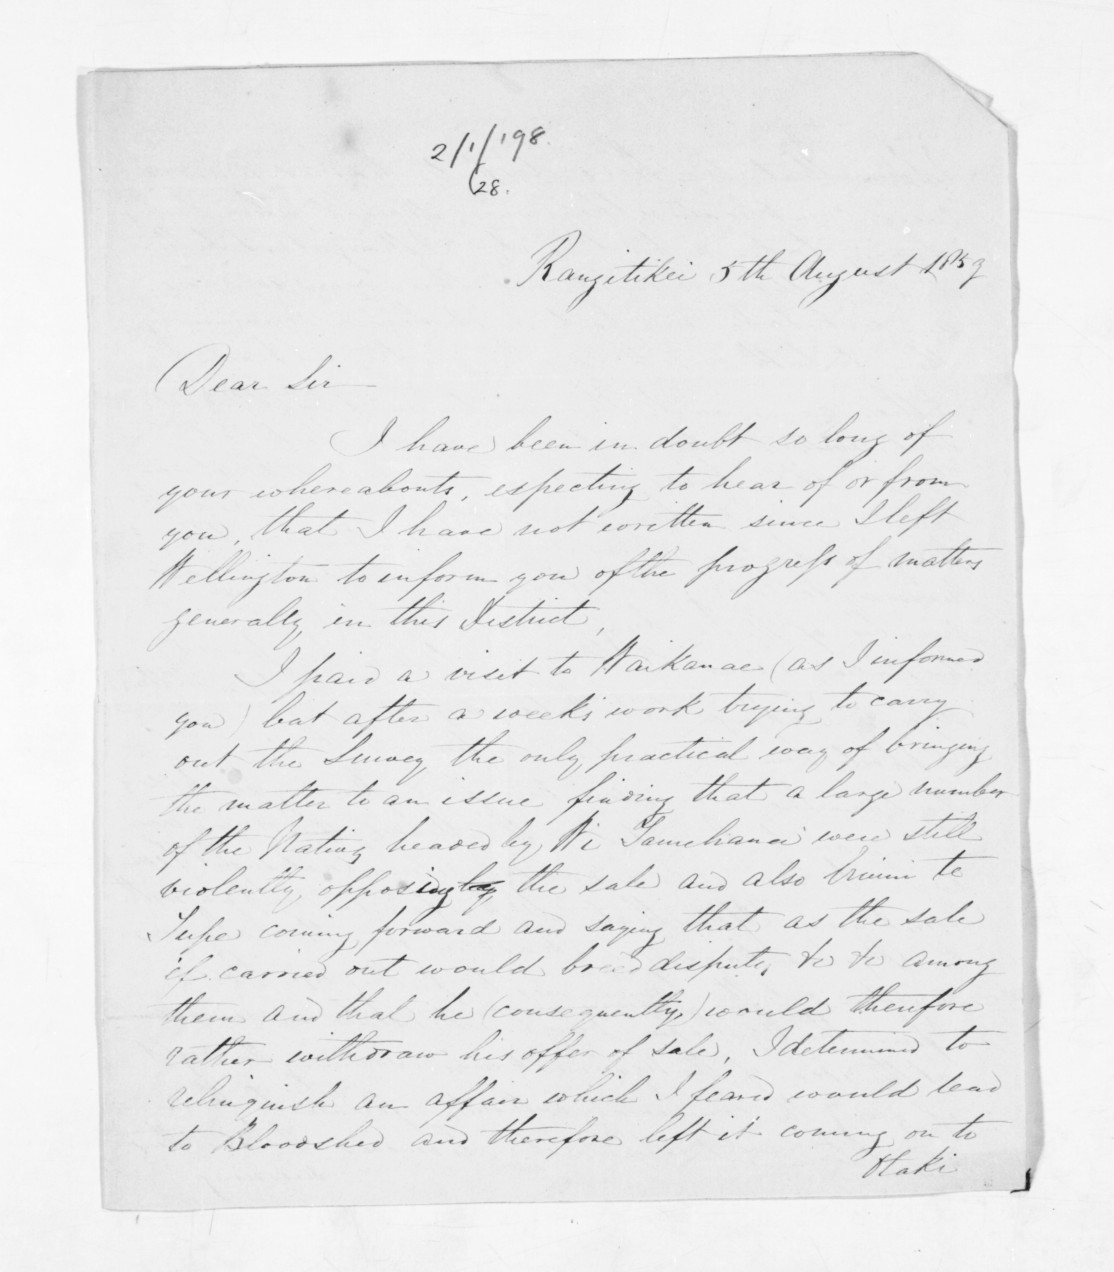 2/1/198.
(28.
Rangitikei 5th August 1859
Dear Sir
I have been in doubt so long of
your whereabouts, expecting to hear of or from
you, that I have not written since I left
Wellington to inform you of the progress of matters
generally in this District,
I paid a visit to Waikanae (as I informed
you) but after a weeks work trying to carry
out the Survey the only practical way of bringing
the matter to an issue finding that a large number
of the Natives headed by Wi Tamehana were still
violently opposing the sale and also Ihinini te
Tupe coming forward and saying that as the sale
if carried out would breed disputes, &c &c among
them and that he (consequently,) would therefore
rather withdraw his offer of sale, I determined to
relinquish an affair which I feared would lead
to Bloodshed and therefore left it coming on to
Otaki